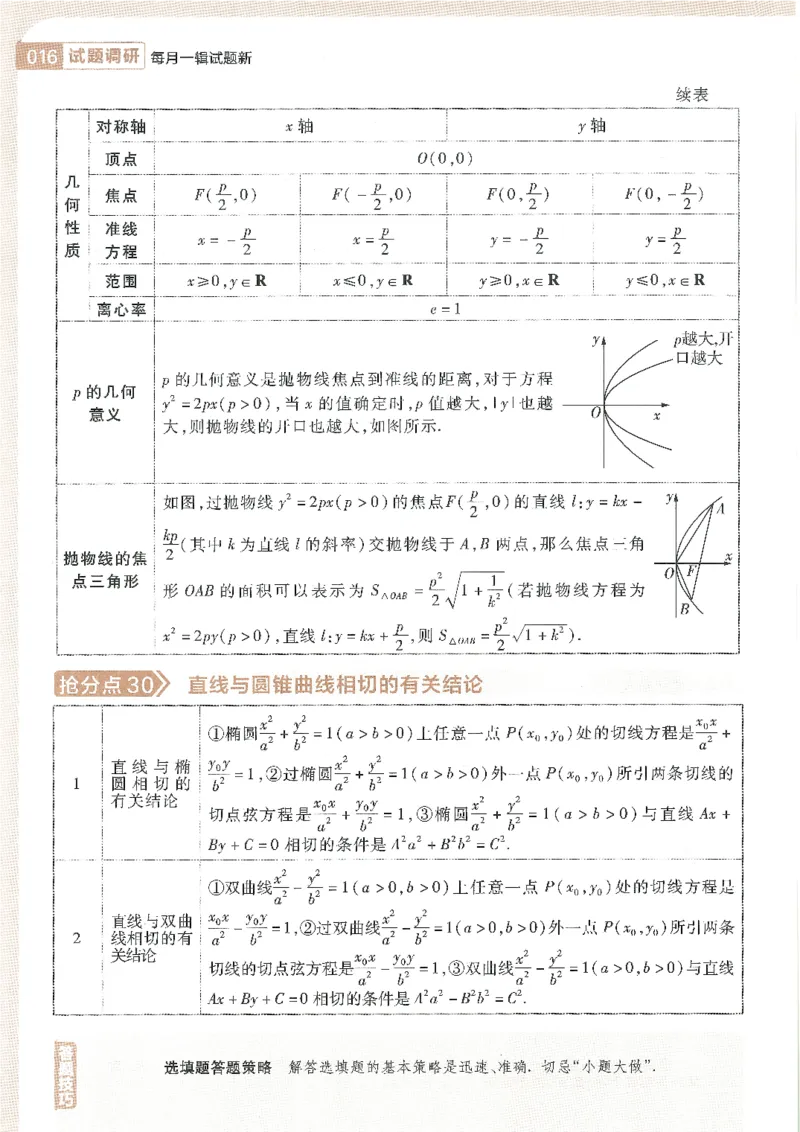 016 试题调研 每月一辑试题新
续表
几何性质
对称轴 x轴 y轴
顶点 O(0,0)
焦点 F(p/2,0) F(-p/2,0) F(0,p/2) F(0,-p/2)
准线方程 x=-p/2 x=p/2 y=-p/2 y=p/2
范围 x≥0,y∈R x≤0,y∈R y≥0,x∈R y≤0,x∈R
离心率 e=1
p的几何意义
p的几何意义是抛物线焦点到准线的距离,对于方程
y²=2px(p>0),当x的值确定时,p值越大,|y|也越
大,则抛物线的开口也越大,如图所示.
y p越大,开口越大
O x
抛物线的焦点三角形
如图,过抛物线y²=2px(p>0)的焦点F(p/2,0)的直线l:y=kx-
kp/2(其中k为直线l的斜率)交抛物线于A,B两点,那么焦点三角
形OAB的面积可以表示为S△OAB=p²/2√(1+1/k²)(若抛物线方程为
x²=2py(p>0),直线l:y=kx+p/2,则S△OAB=p²/2√(1+k²)).
y A
O F x
B
抢分点30 直线与圆锥曲线相切的有关结论
1 直线与椭圆相切的有关结论
①椭圆x²/a²+y²/b²=1(a>b>0)上任意一点P(x₀,y₀)处的切线方程是x₀x/a²+
y₀y/b²=1,②过椭圆x²/a²+y²/b²=1(a>b>0)外一点P(x₀,y₀)所引两条切线的
切点弦方程是x₀x/a²+y₀y/b²=1,③椭圆x²/a²+y²/b²=1(a>b>0)与直线Ax+
By+C=0相切的条件是A²a²+B²b²=C².
2 直线与双曲线相切的有关结论
①双曲线x²/a²-y²/b²=1(a>0,b>0)上任意一点P(x₀,y₀)处的切线方程是
x₀x/a²-y₀y/b²=1,②过双曲线x²/a²-y²/b²=1(a>0,b>0)外一点P(x₀,y₀)所引两条
切线的切点弦方程是x₀x/a²-y₀y/b²=1,③双曲线x²/a²-y²/b²=1(a>0,b>0)与直线
Ax+By+C=0相切的条件是A²a²-B²b²=C².
答题技巧
选填题答题策略 解答选填题的基本策略是迅速、准确.切忌“小题大做”.